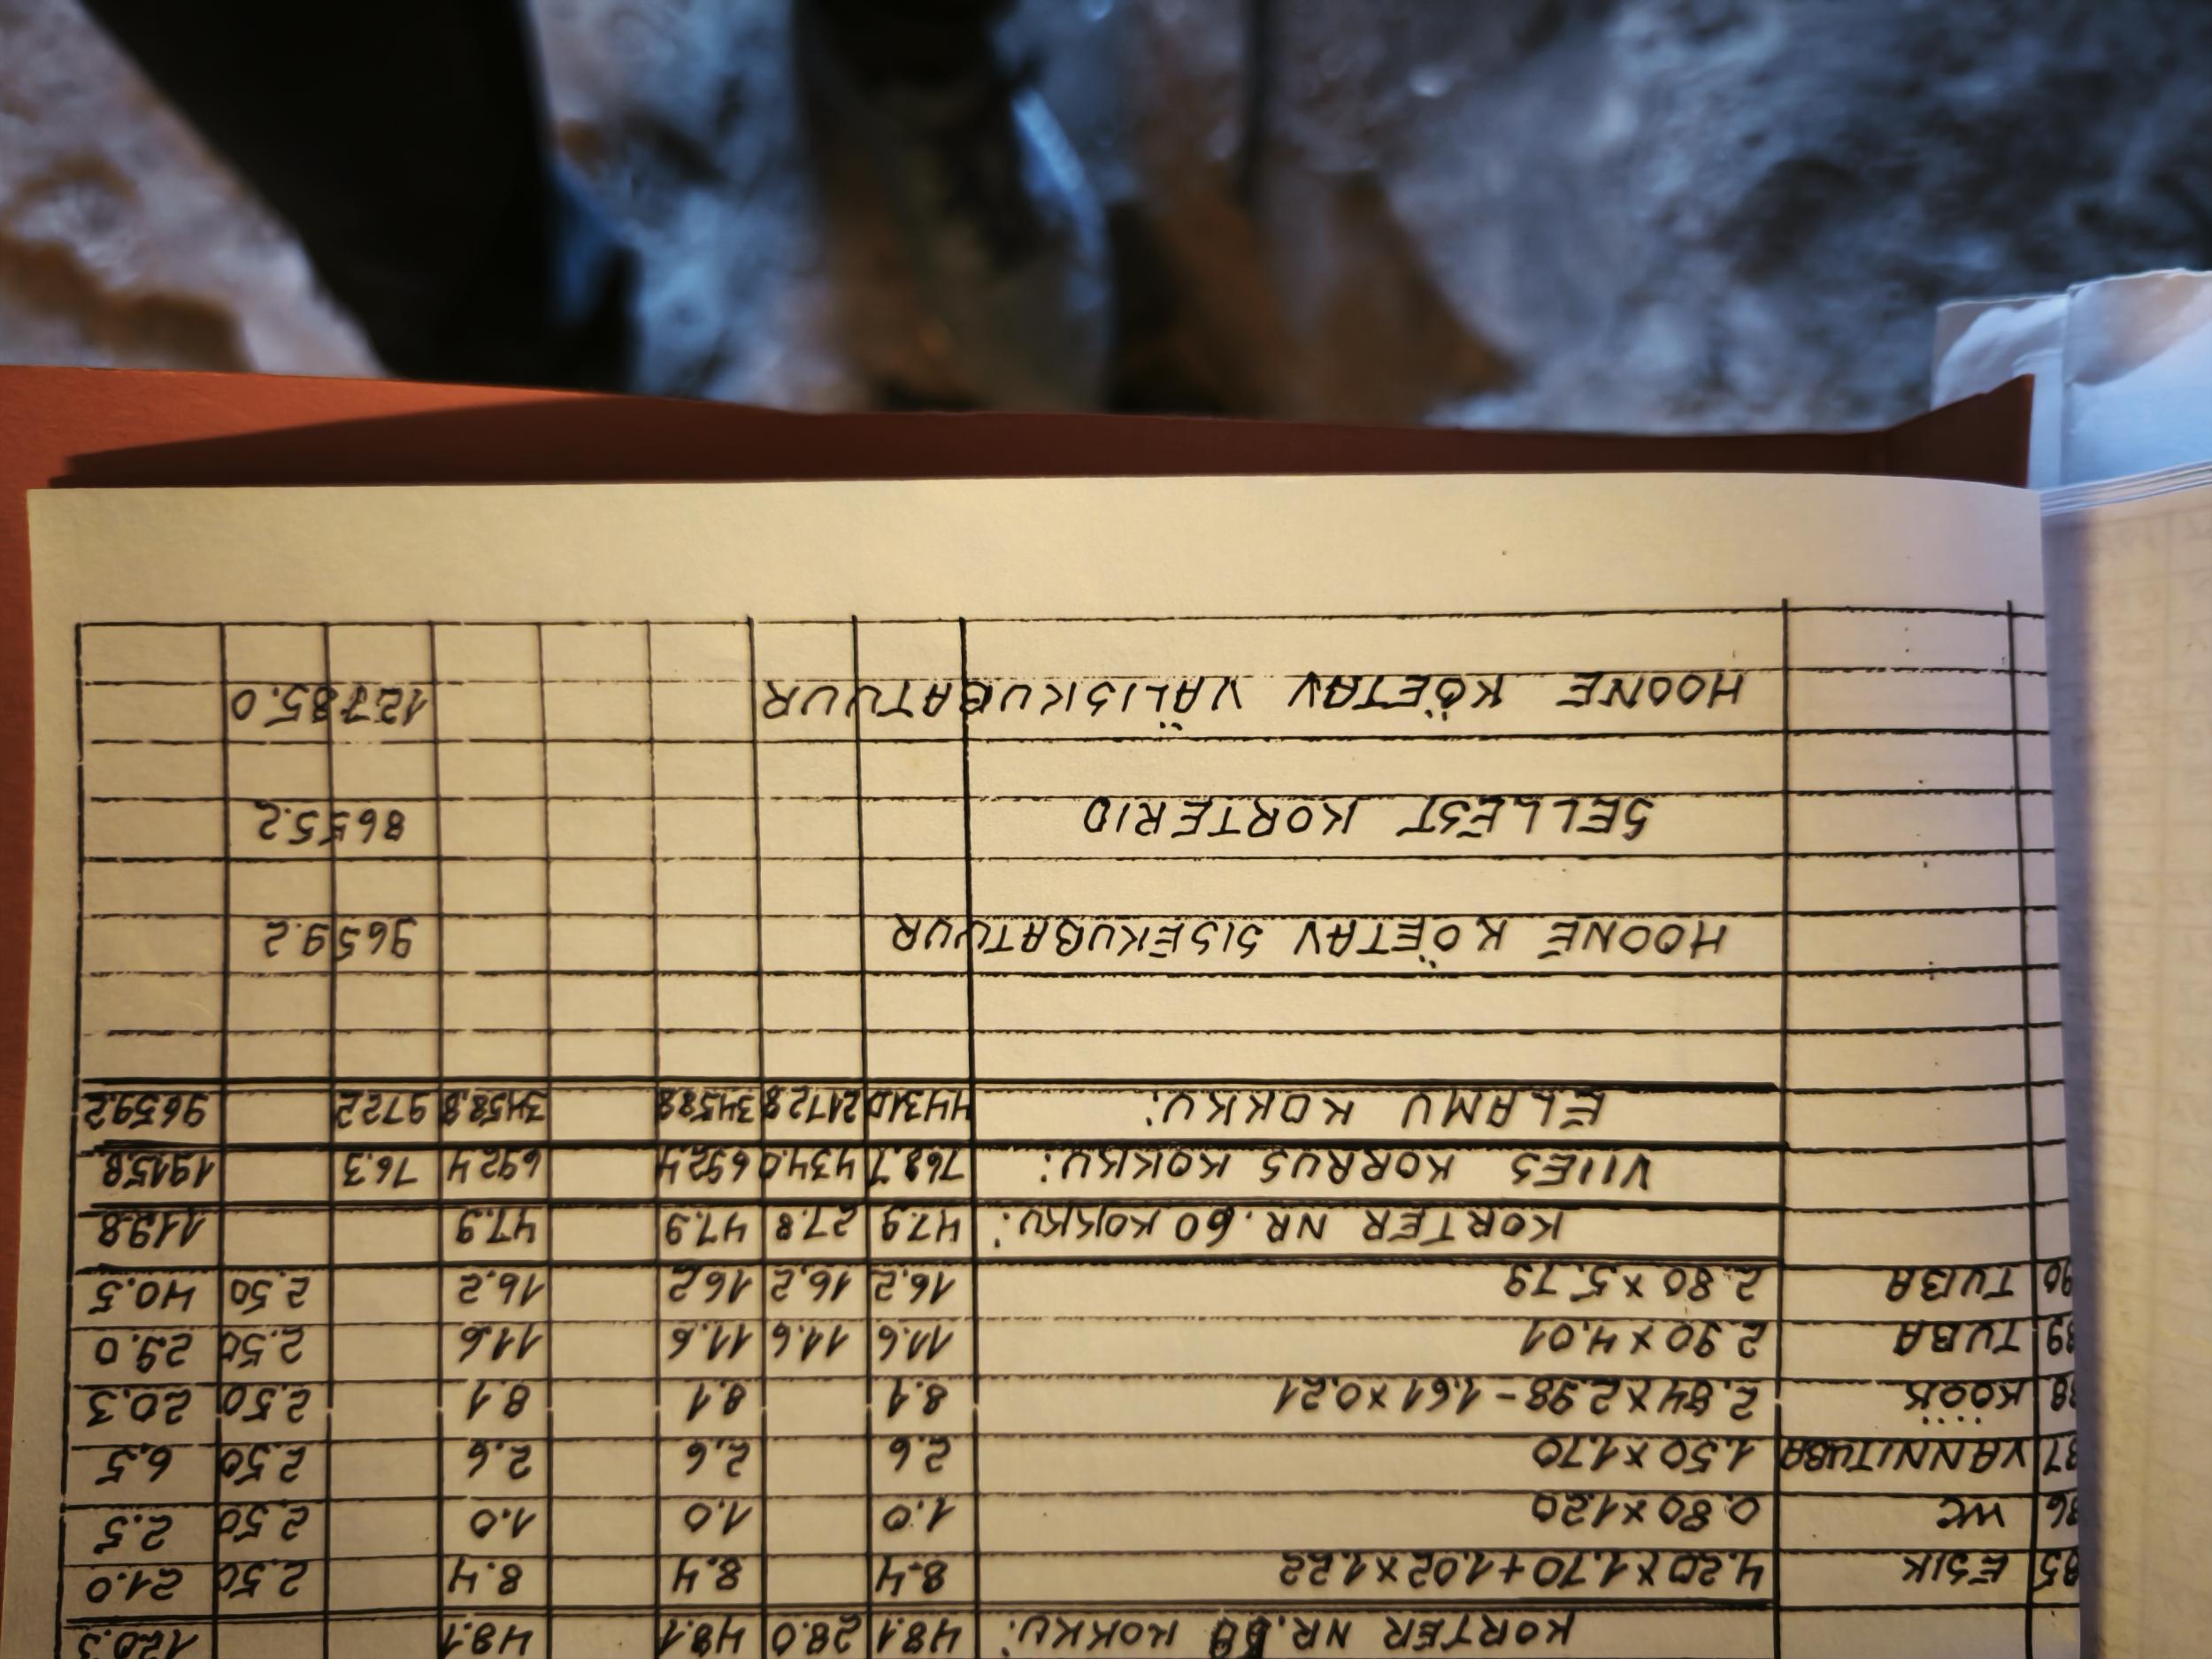 KORTER NR. KOKKU: 48.1 28.0 48.1 48.1 120.3
85 ESIK 4.20×1.70+1.02×1.22 8.4 8.4 8.4 2.50 21.0
86 WC 0.80×1.20 1.0 1.0 1.0 2.50 2.5
87 VANNITUBA 1.50×1.70 2.6 2.6 2.6 2.50 6.5
88 KÖÖK 2.84×2.98-1.61×0.21 8.1 8.1 8.1 2.50 20.3
89 TUBA 2.90×4.01 11.6 11.6 11.6 11.6 2.50 29.0
90 TUBA 2.80×5.79 16.2 16.2 16.2 16.2 2.50 40.5
KORTER NR.60 KOKKU: 47.9 27.8 47.9 47.9 119.8
VIIES KORRUS KOKKU: 768.7 434.0 692.4 692.4 76.3 1915.8
ELAMU KOKKU: 4431.0 2172.8 3458.8 3458.8 972.2 9659.2
HOONE KÖETAV SISEKUBATUUR 9659.2
SELLEST KORTERID 8655.2
HOONE KÖETAV VÄLISKUBATUUR 12785.0